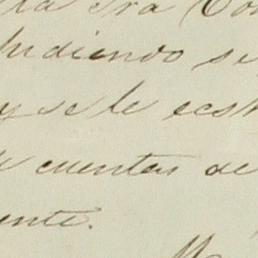 la era Con
ludiendo se
y se le ecst
cuentas de
ente.